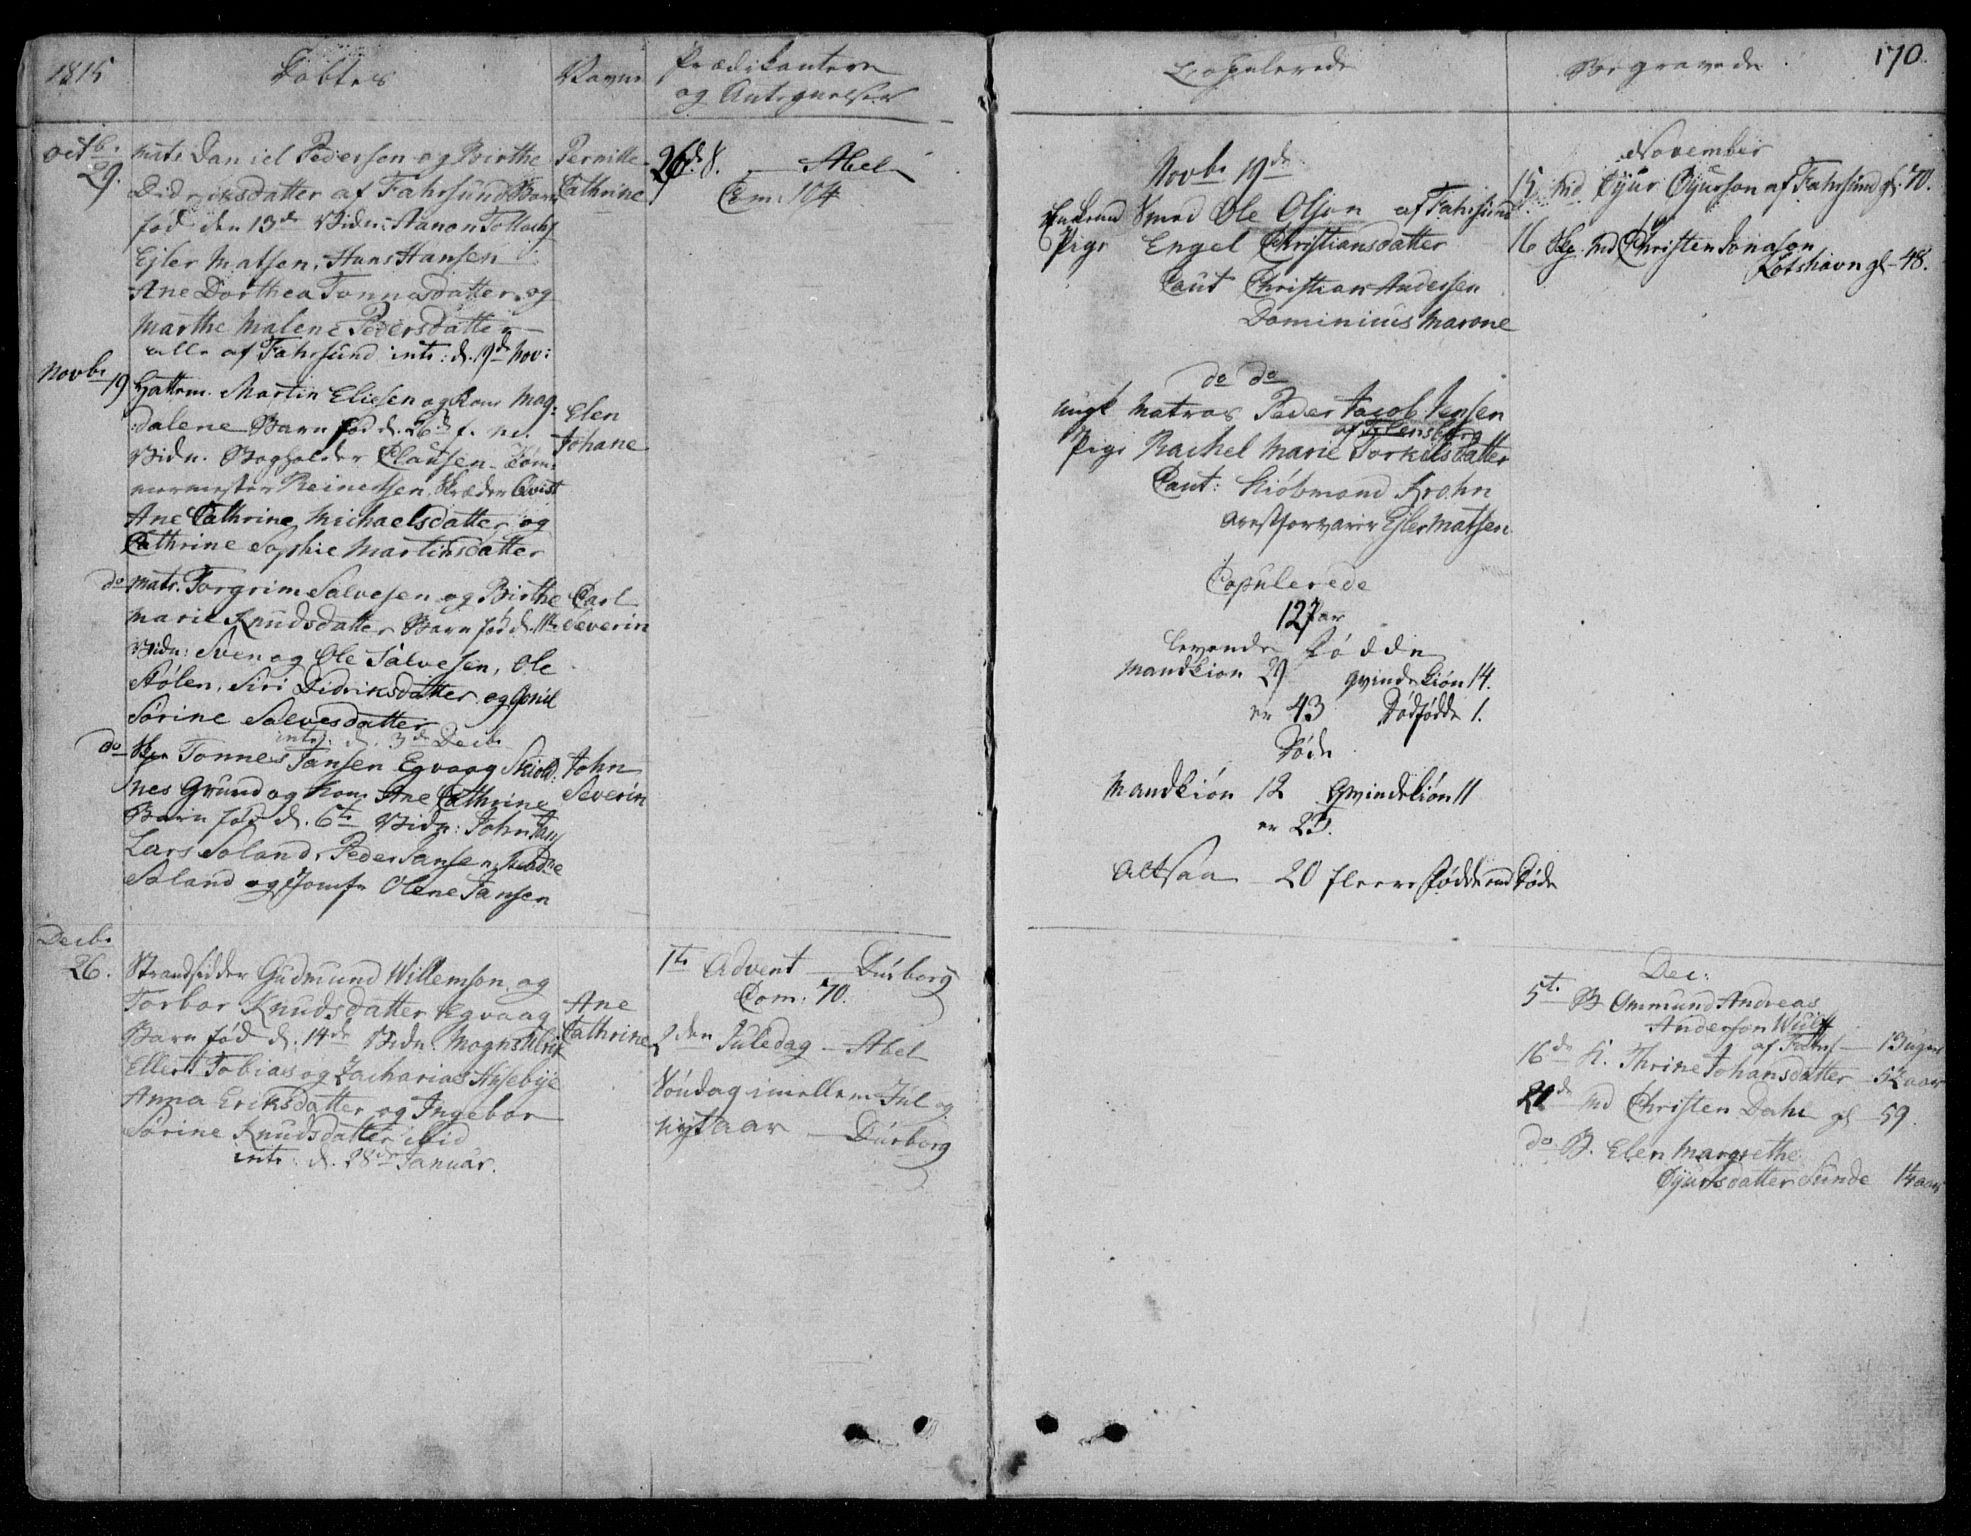 1815
Döbte
Navne
Prædikantere
og Antegnelser
Octbr
29.
Matr. Daniel Pedersen og Birthe
Didriksdatter af Fahrsund Barn
fød den 13de Vidn: Aanon Tollachs
Ejler Matsen. Hans Hansen
Ane Dorthea Tønnesdatter og
Marthe Malene Pedersdatter
alle af Fahrsund intr: d. 19de Nov:
Pernille
Cathrine
26de S. — Abel
Com: 104
Novbr
19
Hattem. Martin Eliesen og Kone Mag-
dalene Barn fød d. 26de f. m.
Vidn. Bogholder Clausen. Tøm-
mermester Reinertsen. Skræder Qvist
Ane Cathrine Michaelsdatter og
Cathrine Sophie Martinsdatter
Elen
Johane
do Matr. Torgrim Salvesen og Birthe
Marie Knudsdatter Barn fød d. 11te
Vidn: Sven og Ole Salvesen, Ole
Stølen, Siri Didriksdatter og Gonil
Sørine Salvesdatter
intr: d. 3de Decbr
Carl
Severin
do Skpr Tønnes Jansen Egvaag Skiold-
nes Grund og Kone Ane Cathrine
Barn fød d. 6te Vidn: John Jans
Lars Soland. Peder Jansen,
Soland og Jomfr Olene Jansen
John
Severin
Decbr
26.
Strandsidder Gudmund Willemsen og
Torbor Knudsdatter Egvaag
Barn fød d. 14de Vidn. Mogns
Ellert Tobias og Zacharias Husebye
Anna Eriksdatter og Ingebor
Sørine Knudsdatter ibid
intr: d. 28de Januar.
Ane
Cathrine
1te Advent — Dürborg
Com: 70.
2den Juledag — Abel
Söndag imellem Jul og
Nytaar — Dürborg
Copulerede
Novbr 19de
Enkemd Smed Ole Olson af Fahrsund
Pige Engel Christiansdatter
Caut Christian Andersen
Dominicus Marone
do do
Ungk Matros Peder Jacob Jensen
af Flensborg
Pige Rachel Marie Torkilsdatter
Caut: Kiöbmand Krohn
Arrestforvarer Ejler Matsen
Copulerede
12 Par
levende Födde
Mandkion 29 qvindekiön 14.
er 43 Dödfödde 1.
Döde
Mandkiön 12 Qvindekiön 11
er 23.
Altsaa — 20 fleere Födde end Döde
Begravede
170.
November
15 md Öjur Öjurson af Fahrsund gl. 70.
16 Skp. md Christen Jonason
Lötshavn gl - 48.
Dec:
5te B Ommund Andreas
Anderson Wulff
af Fahrs — 13 uger
16de K. Thrine Johansdatter — 52 aar
21de md Christen Dahl gl — 59.
do B. Elen Margrethe
Öjursdatter Sunde 14 aar